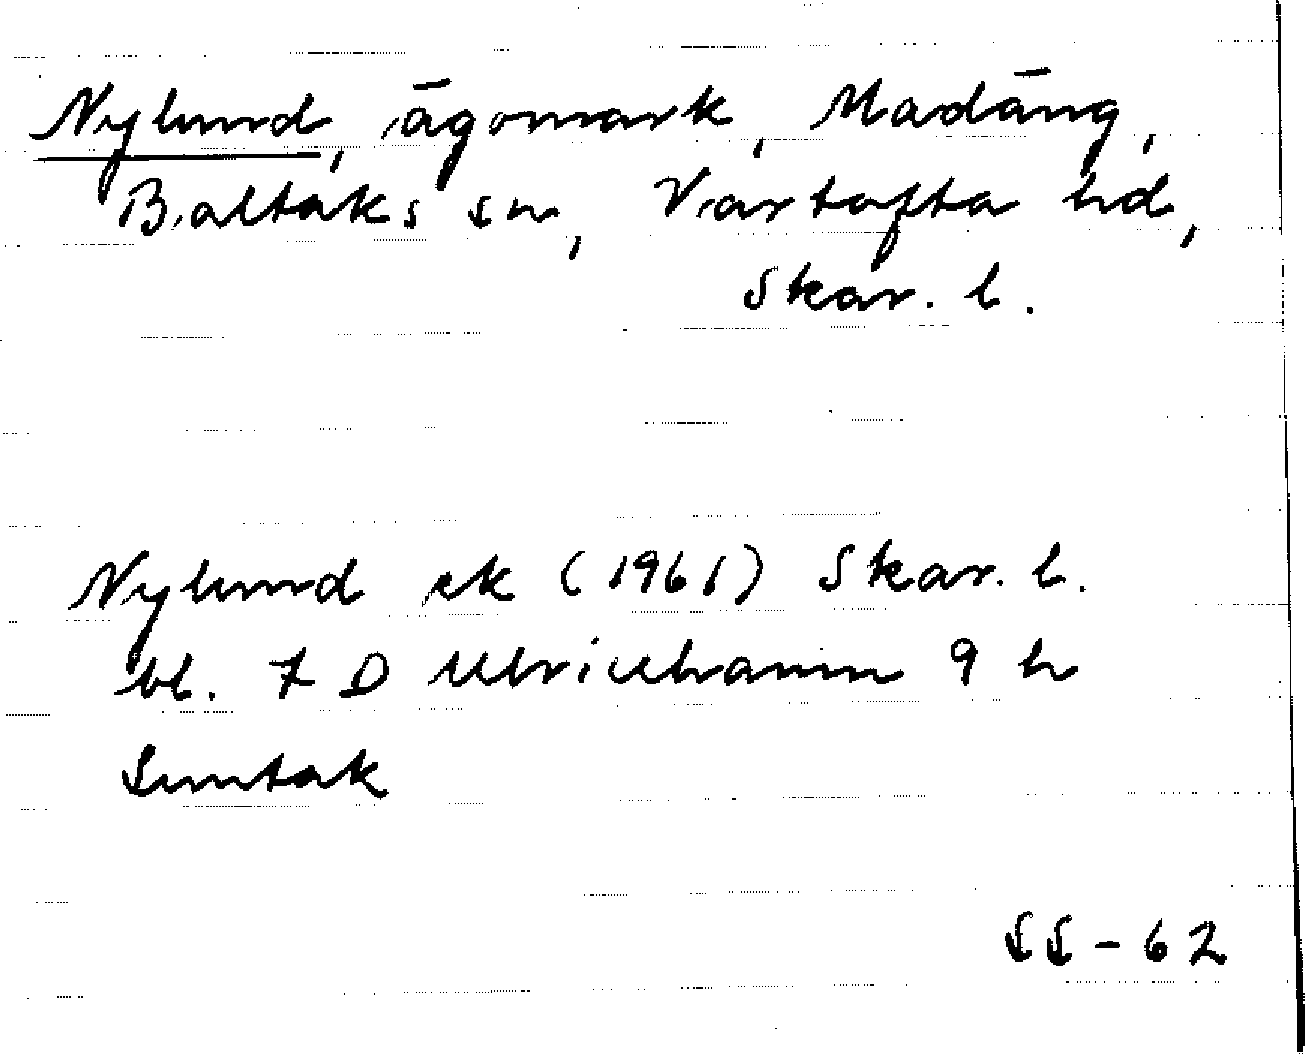 Nylund, ägomark, Madäng,
Baltaks sn, Vartofta hd,
Skar. l.
Nylund ek (1961) Skar. l.
bl. 7 D Ulricehamn 9 h
Suntak
SS-62